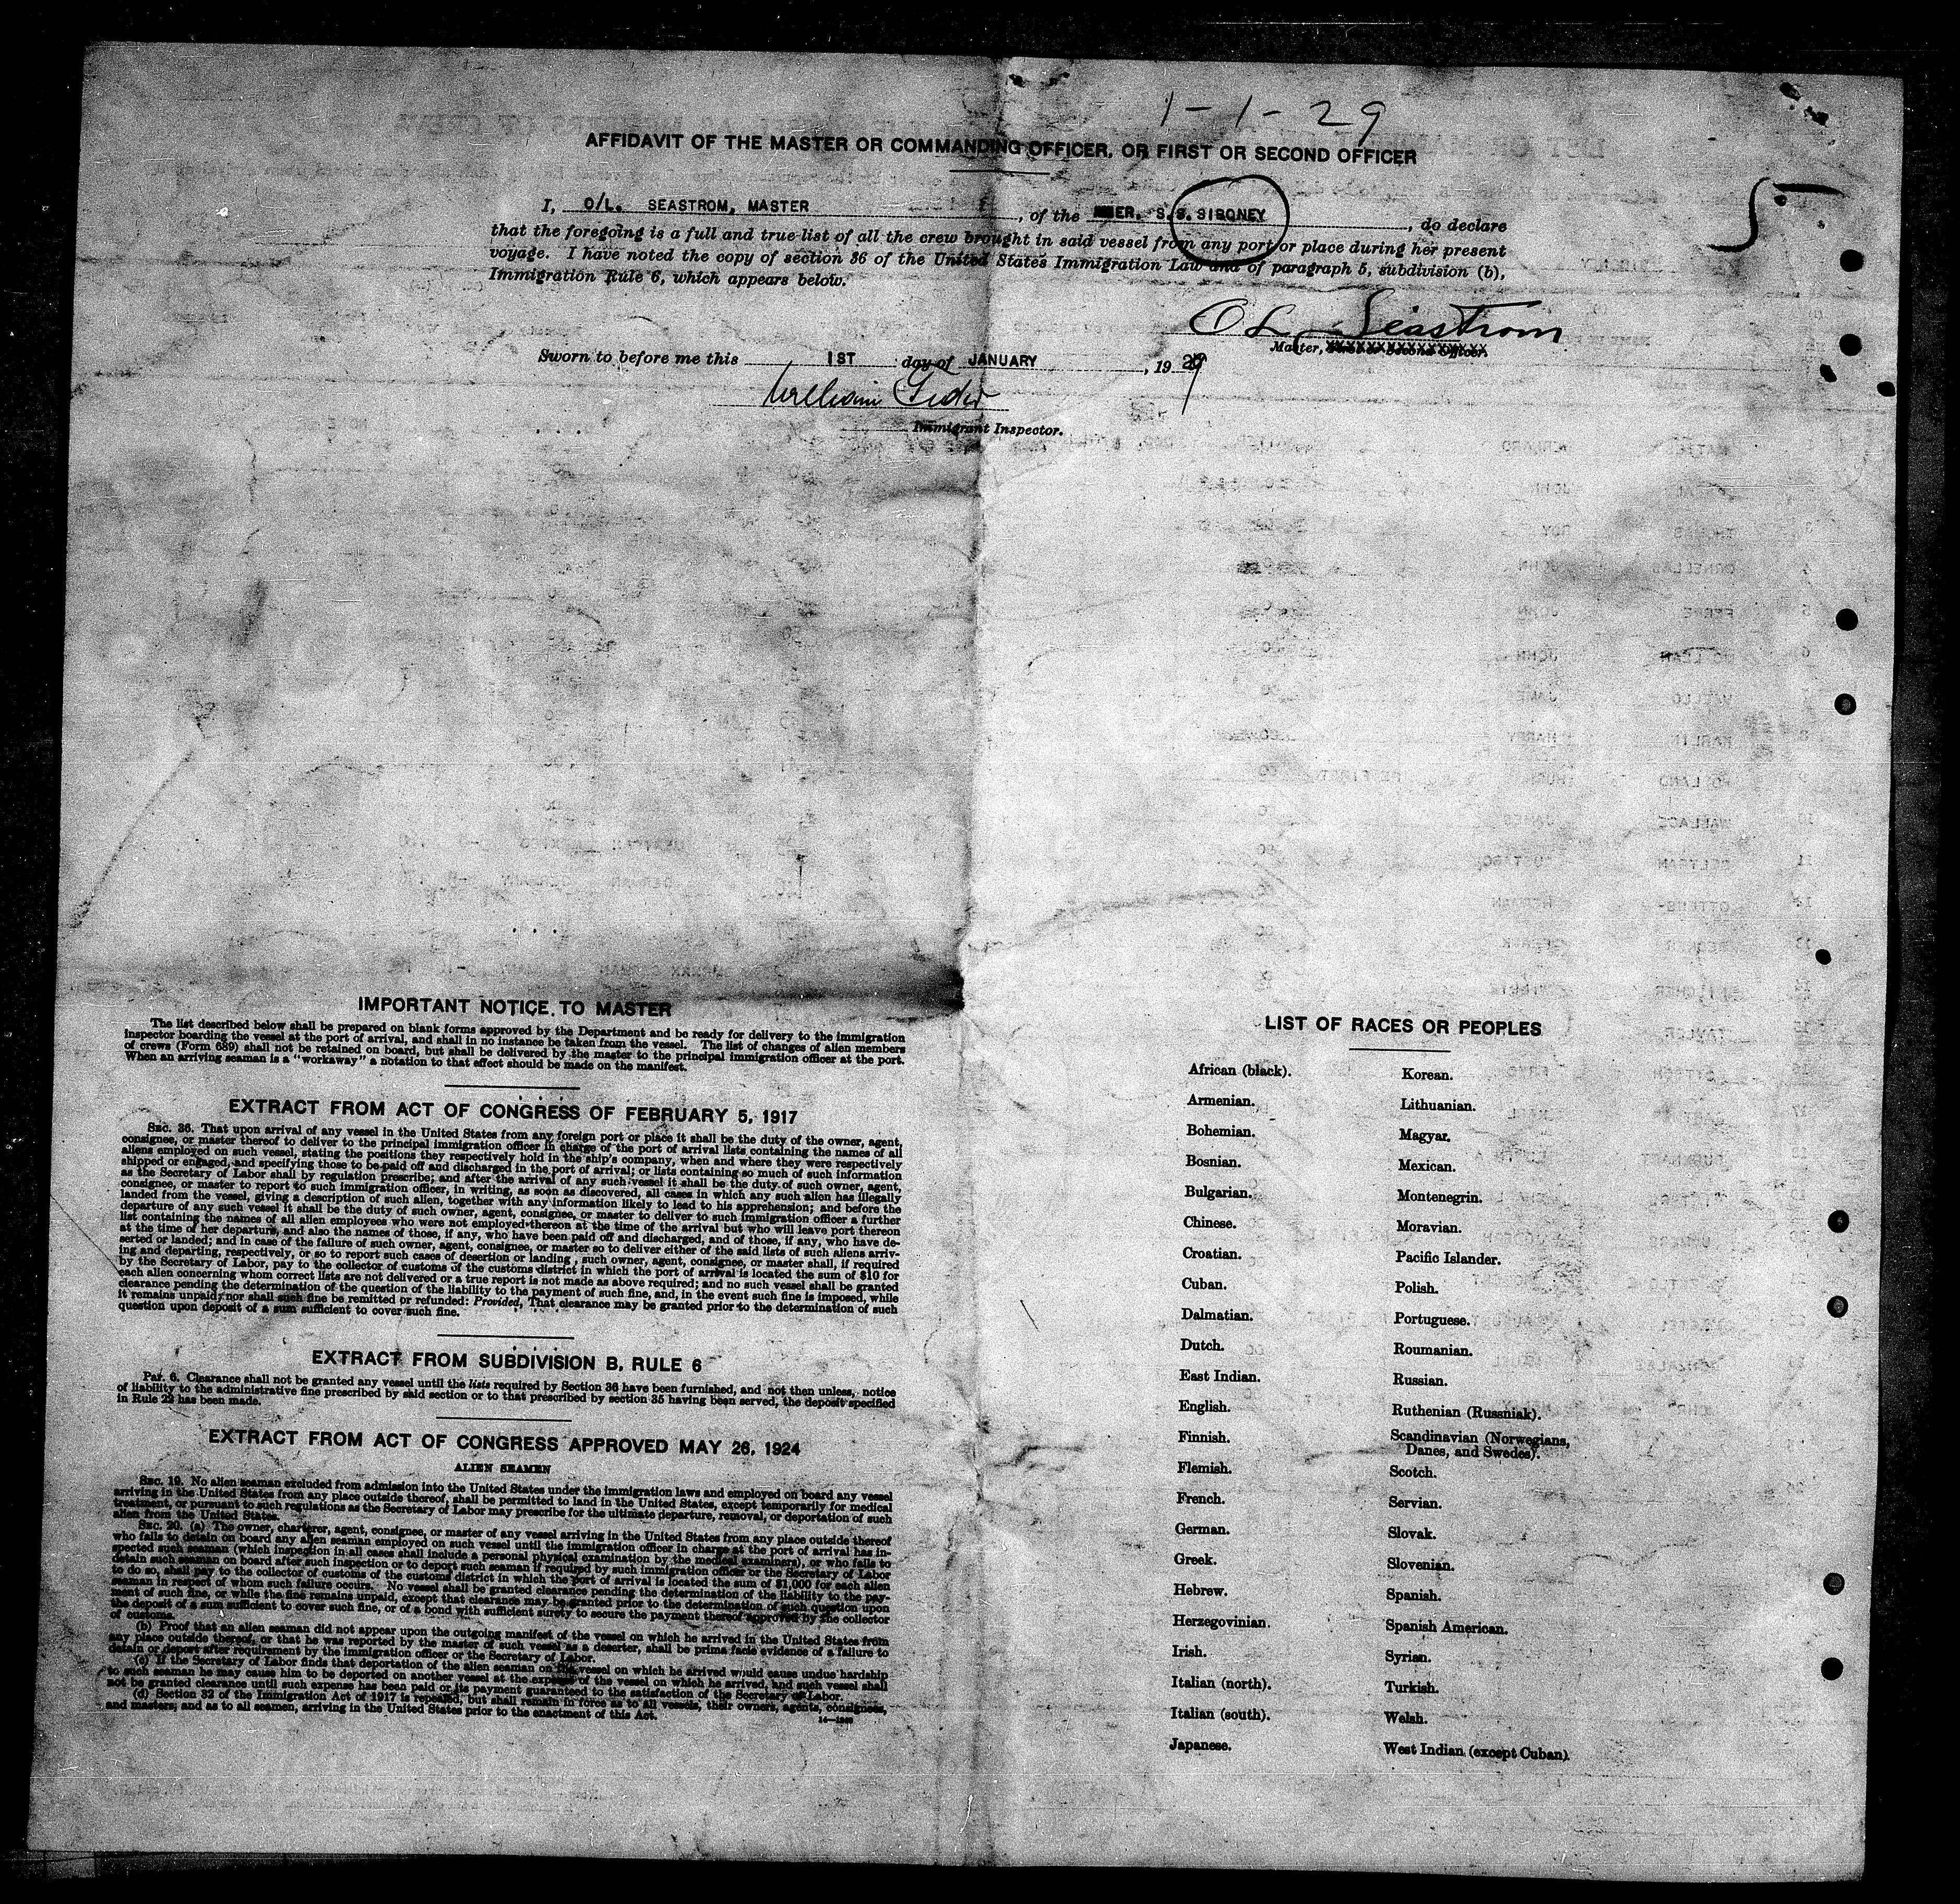 1-1-29
AFFIDAVIT OF THE MASTER OR COMMANDING OFFICER, OR FIRST OR SECOND OFFICER
I, O/L. SEASTROM, MASTER, of the S.S. SIBONEY, do declare
that the foregoing is a full and true list of all the crew brought in said vessel from any port or place during her present
voyage. I have noted the copy of section 36 of the United States Immigration Law and of paragraph 5, subdivision (b),
Immigration Rule 6, which appears below.
O L Seastrom
Master, First or Second Officer.
Sworn to before me this 1ST day of JANUARY, 19 29
William
Immigrant Inspector.
IMPORTANT NOTICE TO MASTER
The list described below shall be prepared on blank forms approved by the Department and be ready for delivery to the immigration
inspector boarding the vessel at the port of arrival, and shall in no instance be taken from the vessel. The list of changes of alien members
of crews (Form 689) shall not be retained on board, but shall be delivered by the master to the principal immigration officer at the port.
When an arriving seaman is a "workaway" a notation to that effect should be made on the manifest.
EXTRACT FROM ACT OF CONGRESS OF FEBRUARY 5, 1917
SEC. 36. That upon arrival of any vessel in the United States from any foreign port or place it shall be the duty of the owner, agent,
consignee, or master thereof to deliver to the principal immigration officer in charge of the port of arrival lists containing the names of all
aliens employed on such vessel, stating the positions they respectively hold in the ship's company, when and where they were respectively
shipped or engaged, and specifying those to be paid off and discharged in the port of arrival; or lists containing so much of such information
as the Secretary of Labor shall by regulation prescribe; and after the arrival of any such vessel it shall be the duty of such owner, agent,
consignee, or master to report to such immigration officer, in writing, as soon as discovered, all cases in which any such alien has illegally
landed from the vessel, giving a description of such alien, together with any information likely to lead to his apprehension; and before the
departure of any such vessel it shall be the duty of such owner, agent, consignee, or master to deliver to such immigration officer a further
list containing the names of all alien employees who were not employed thereon at the time of the arrival but who will leave port thereon
at the time of her departure, and also the names of those, if any, who have been paid off and discharged, and of those, if any, who have de-
serted or landed; and in case of the failure of such owner, agent, consignee, or master so to deliver either of the said lists of such aliens arriv-
ing and departing, respectively, or so to report such cases of desertion or landing, such owner, agent, consignee, or master shall, if required
by the Secretary of Labor, pay to the collector of customs of the customs district in which the port of arrival is located the sum of $10 for
each alien concerning whom correct lists are not delivered or a true report is not made as above required; and no such vessel shall be granted
clearance pending the determination of the question of the liability to the payment of such fine, and, in the event such fine is imposed, while
it remains unpaid; nor shall such fine be remitted or refunded: Provided, That clearance may be granted prior to the determination of such
question upon deposit of a sum sufficient to cover such fine.
EXTRACT FROM SUBDIVISION B, RULE 6
Par. 6. Clearance shall not be granted any vessel until the lists required by Section 36 have been furnished, and not then unless, notice
of liability to the administrative fine prescribed by said section or to that prescribed by section 35 having been served, the deposit specified
in Rule 22 has been made.
EXTRACT FROM ACT OF CONGRESS APPROVED MAY 26, 1924
ALIEN SEAMEN
SEC. 19. No alien seaman excluded from admission into the United States under the immigration laws and employed on board any vessel
arriving in the United States from any place outside thereof, shall be permitted to land in the United States, except temporarily for medical
treatment, or pursuant to such regulations as the Secretary of Labor may prescribe for the ultimate departure, removal, or deportation of such
alien from the United States.
SEC. 20. (a) The owner, charterer, agent, consignee, or master of any vessel arriving in the United States from any place outside thereof
who fails to detain on board any alien seaman employed on such vessel until the immigration officer in charge at the port of arrival has in-
spected such seaman (which inspection in all cases shall include a personal physical examination by the medical examiners), or who fails to
detain such seaman on board after such inspection or to deport such seaman if required by such immigration officer or the Secretary of Labor
to do so, shall pay to the collector of customs of the customs district in which the port of arrival is located the sum of $1,000 for each alien
seaman in respect of whom such failure occurs. No vessel shall be granted clearance pending the determination of the liability to the pay-
ment of such fine, or while the fine remains unpaid, except that clearance may be granted prior to the determination of such question upon
the deposit of a sum sufficient to cover such fine, or of a bond with sufficient surety to secure the payment thereof approved by the collector
of customs.
(b) Proof that an alien seaman did not appear upon the outgoing manifest of the vessel on which he arrived in the United States from
any place outside thereof, or that he was reported by the master of such vessel as a deserter, shall be prima facie evidence of a failure to
detain or deport after requirement by the immigration officer or the Secretary of Labor.
(c) If the Secretary of Labor finds that deportation of the alien seaman on the vessel on which he arrived would cause undue hardship
to such seaman he may cause him to be deported on another vessel at the expense of the vessel on which he arrived, and such vessel shall
not be granted clearance until such expense has been paid or its payment guaranteed to the satisfaction of the Secretary of Labor.
(d) Section 32 of the Immigration Act of 1917 is repealed, but shall remain in force as to all vessels, their owners, agents, consignees,
and masters, and as to all seamen, arriving in the United States prior to the enactment of this Act.
LIST OF RACES OR PEOPLES
African (black).
Armenian.
Bohemian.
Bosnian.
Bulgarian.
Chinese.
Croatian.
Cuban.
Dalmatian.
Dutch.
East Indian.
English.
Finnish.
Flemish.
French.
German.
Greek.
Hebrew.
Herzegovinian.
Irish.
Italian (north).
Italian (south).
Japanese.
Korean.
Lithuanian.
Magyar.
Mexican.
Montenegrin.
Moravian.
Pacific Islander.
Polish.
Portuguese.
Roumanian.
Russian.
Ruthenian (Russniak).
Scandinavian (Norwegians,
Danes, and Swedes).
Scotch.
Servian.
Slovak.
Slovenian.
Spanish.
Spanish American.
Syrian.
Turkish.
Welsh.
West Indian (except Cuban).